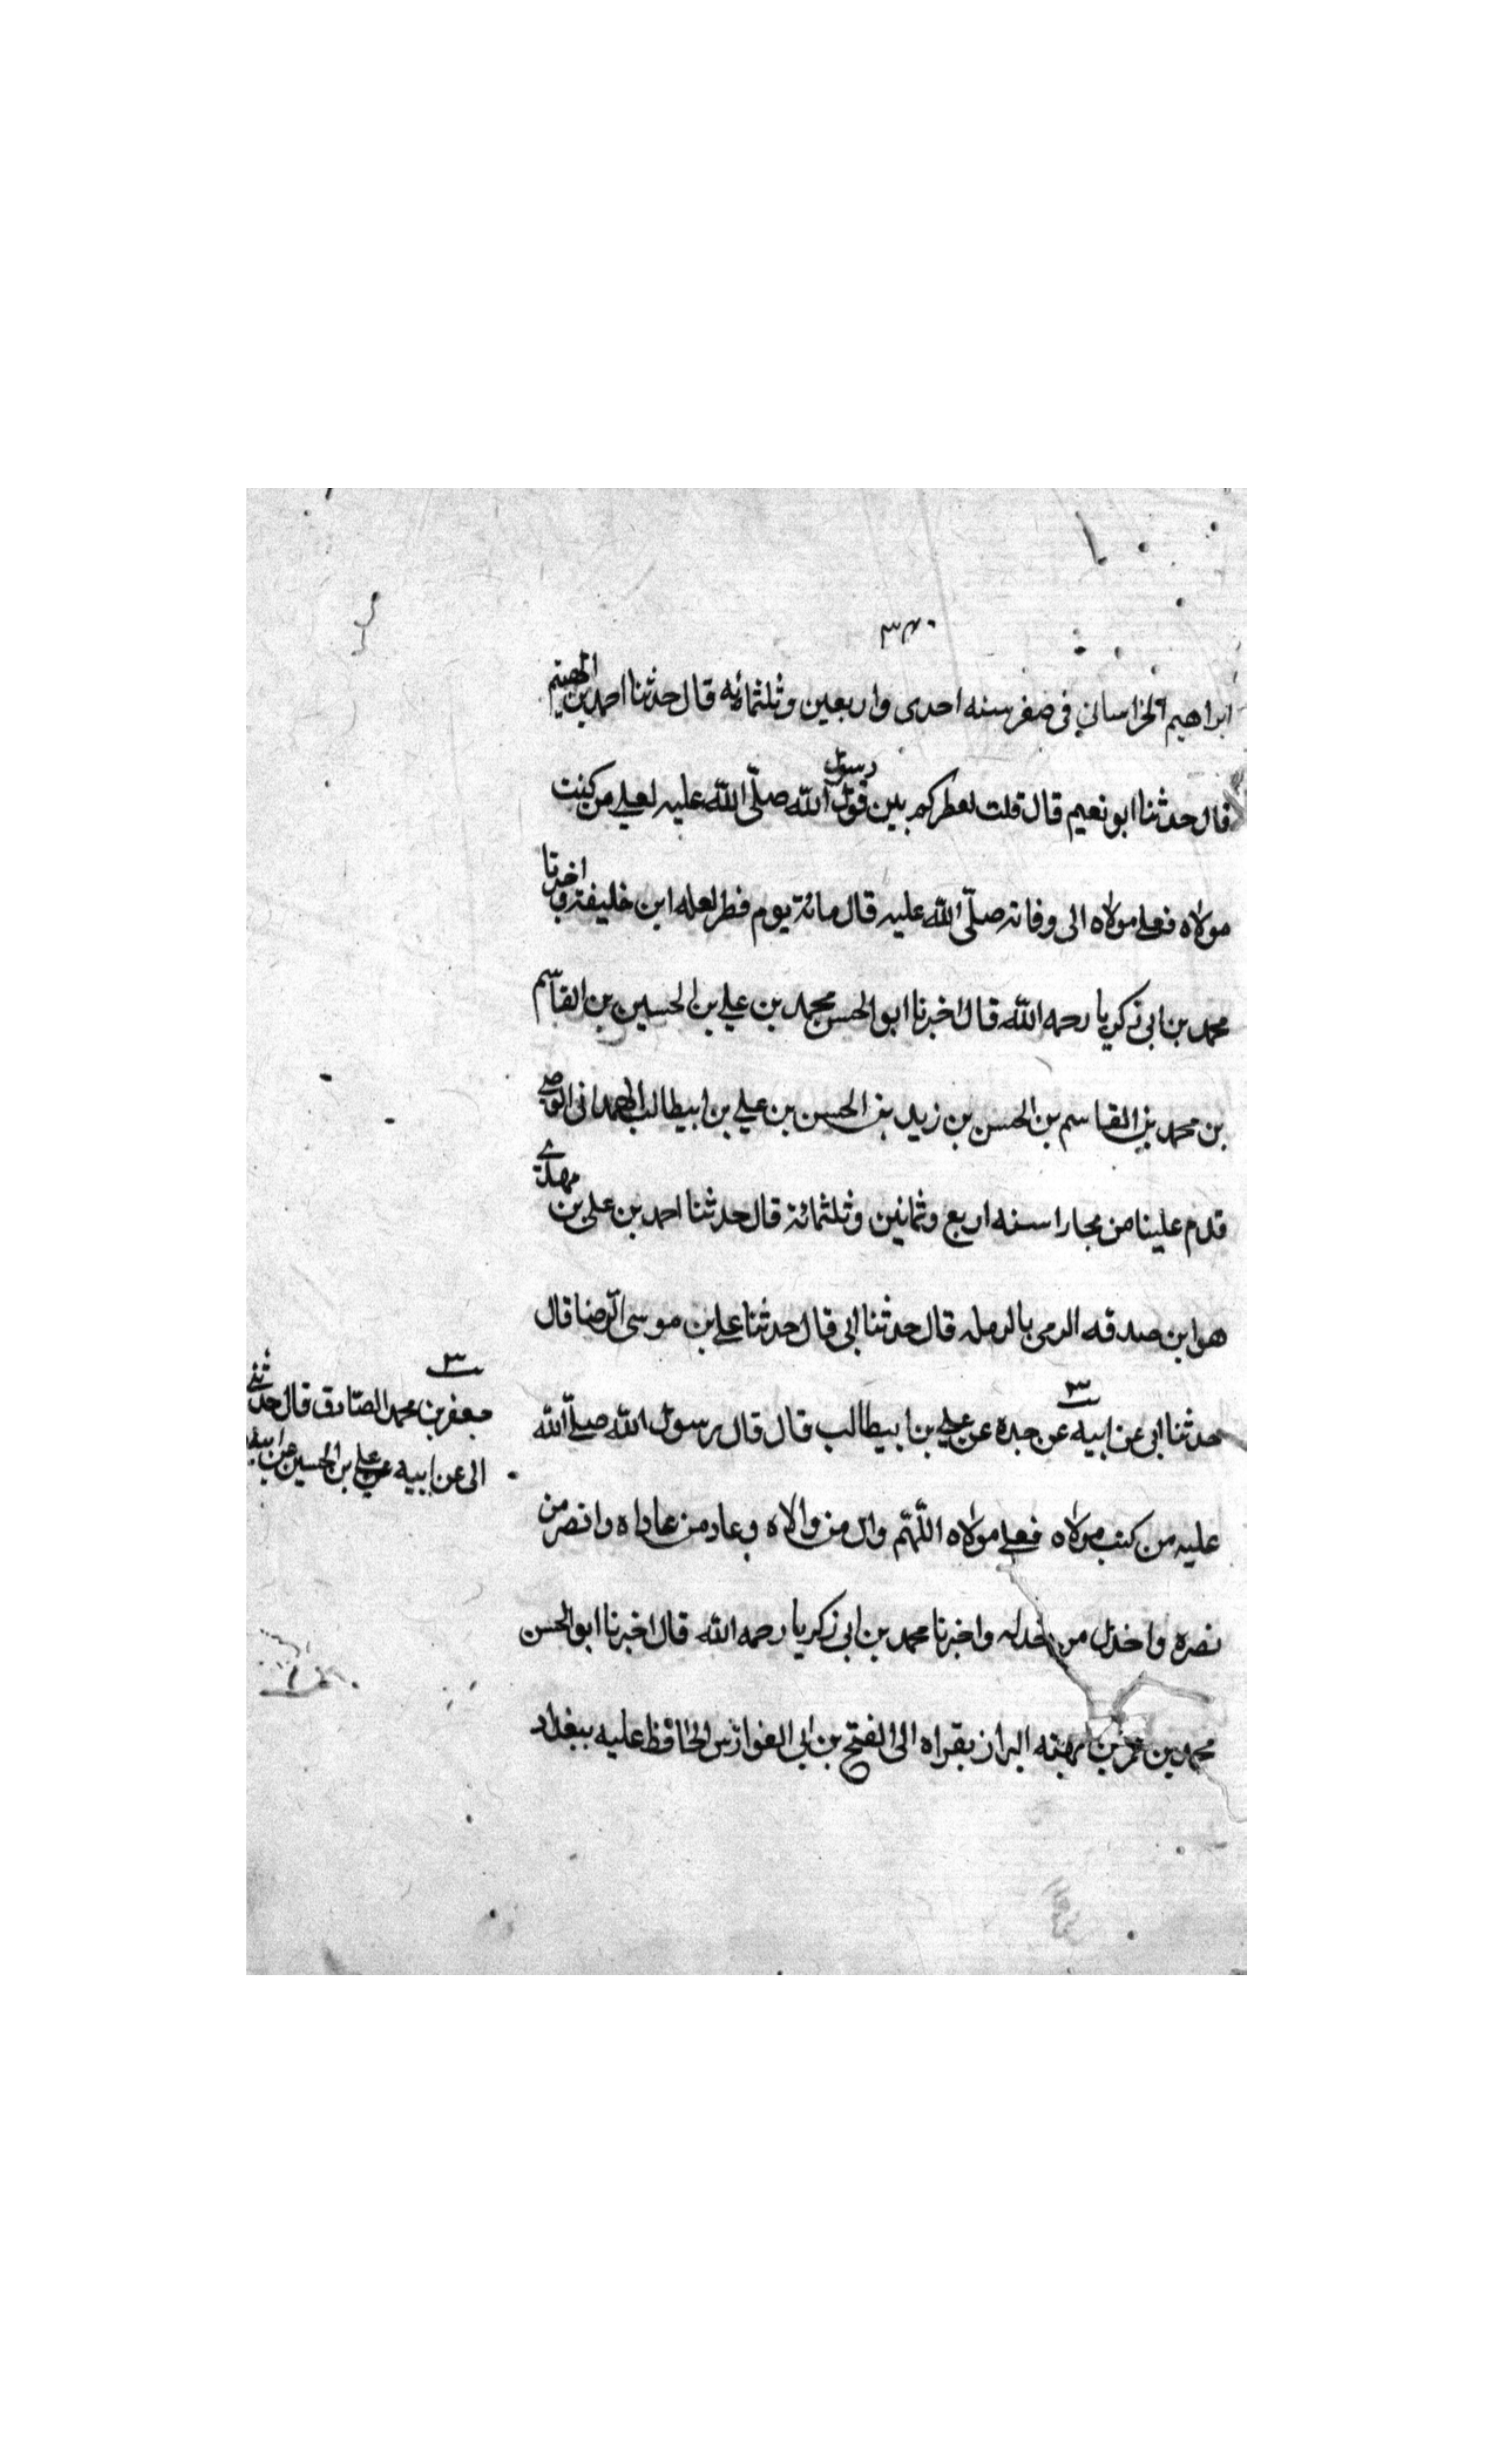 ٣٣٠
ابراهيم الخراساني في صفر سنه احدى واربعين وثلثمائه قال حدثنا احمد بن الهيثم
قال حدثنا ابو نعيم قال قلت لفطر كم بين قول رسول الله صلّى الله عليه لعلي من كنت
مولاه فعلي مولاه الى وفاته صلّى الله عليه قال مائة يوم فطر لعله ابن خليفة واخبرنا
محمد بن ابي زكريا رحمه الله قال اخبرنا ابو الحسن محمد بن علي بن الحسين بن القاسم
بن محمد بن القاسم بن الحسن بن زيد بن الحسن بن علي بن ابيطالب الهمداني الوصي
قدم علينا من بخارا سنه اربع وثمانين وثلثمائة قال حدثنا احمد بن علي بن مهدي
هو ابن صدقه الرمي بالرمله قال حدثنا ابي قال حدثنا علي بن موسى الرّضا قال
حدثنا ابي عن ابيه عن جده عن علي بن ابيطالب قال قال رسول الله صلّى الله
عليه من كنت مولاه فعلي مولاه اللّهمّ وال من والاه وعاد من عاداه وانصر من
نصره واخذل من خذله واخبرنا محمد بن ابي زكريا رحمه الله قال اخبرنا ابو الحسن
محمد بن عمر بن بهته البزاز بقراه ابي الفتح بن ابي الفوارس الحافظ عليه ببغداد
جعفر بن محمد الصّادق قال حدثني
ابي عن ابيه عن علي بن الحسين عن ابيه